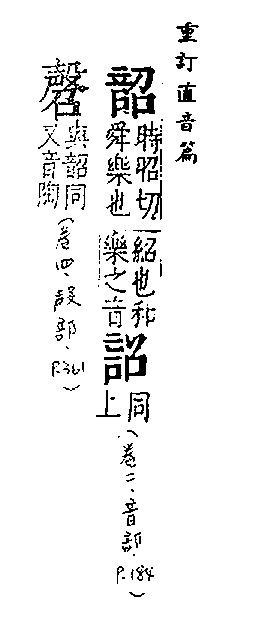 重訂直音篇
韶
時昭切紹也和
舜樂也樂之音
詔
同
上
(卷二、音部、P.184)
㲈
與韶同
又音陶
(卷四、殸部、P.361)